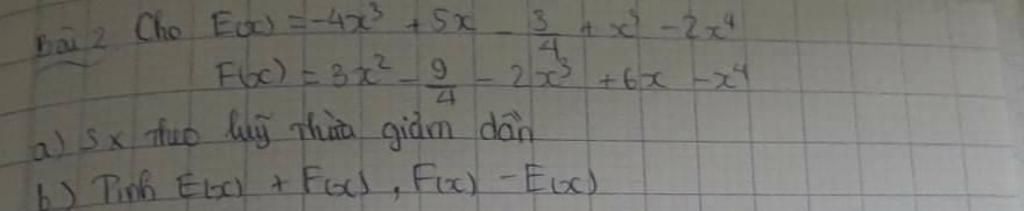 Bài 2 Cho E(x) = -4x³ + 5x - 3/4 + x³ - 2x⁴
F(x) = 3x² - 9/4 - 2x³ + 6x - x⁴
a) Sx theo luỹ thừa giảm dần
b) Tính E(x) + F(x), F(x) - E(x)